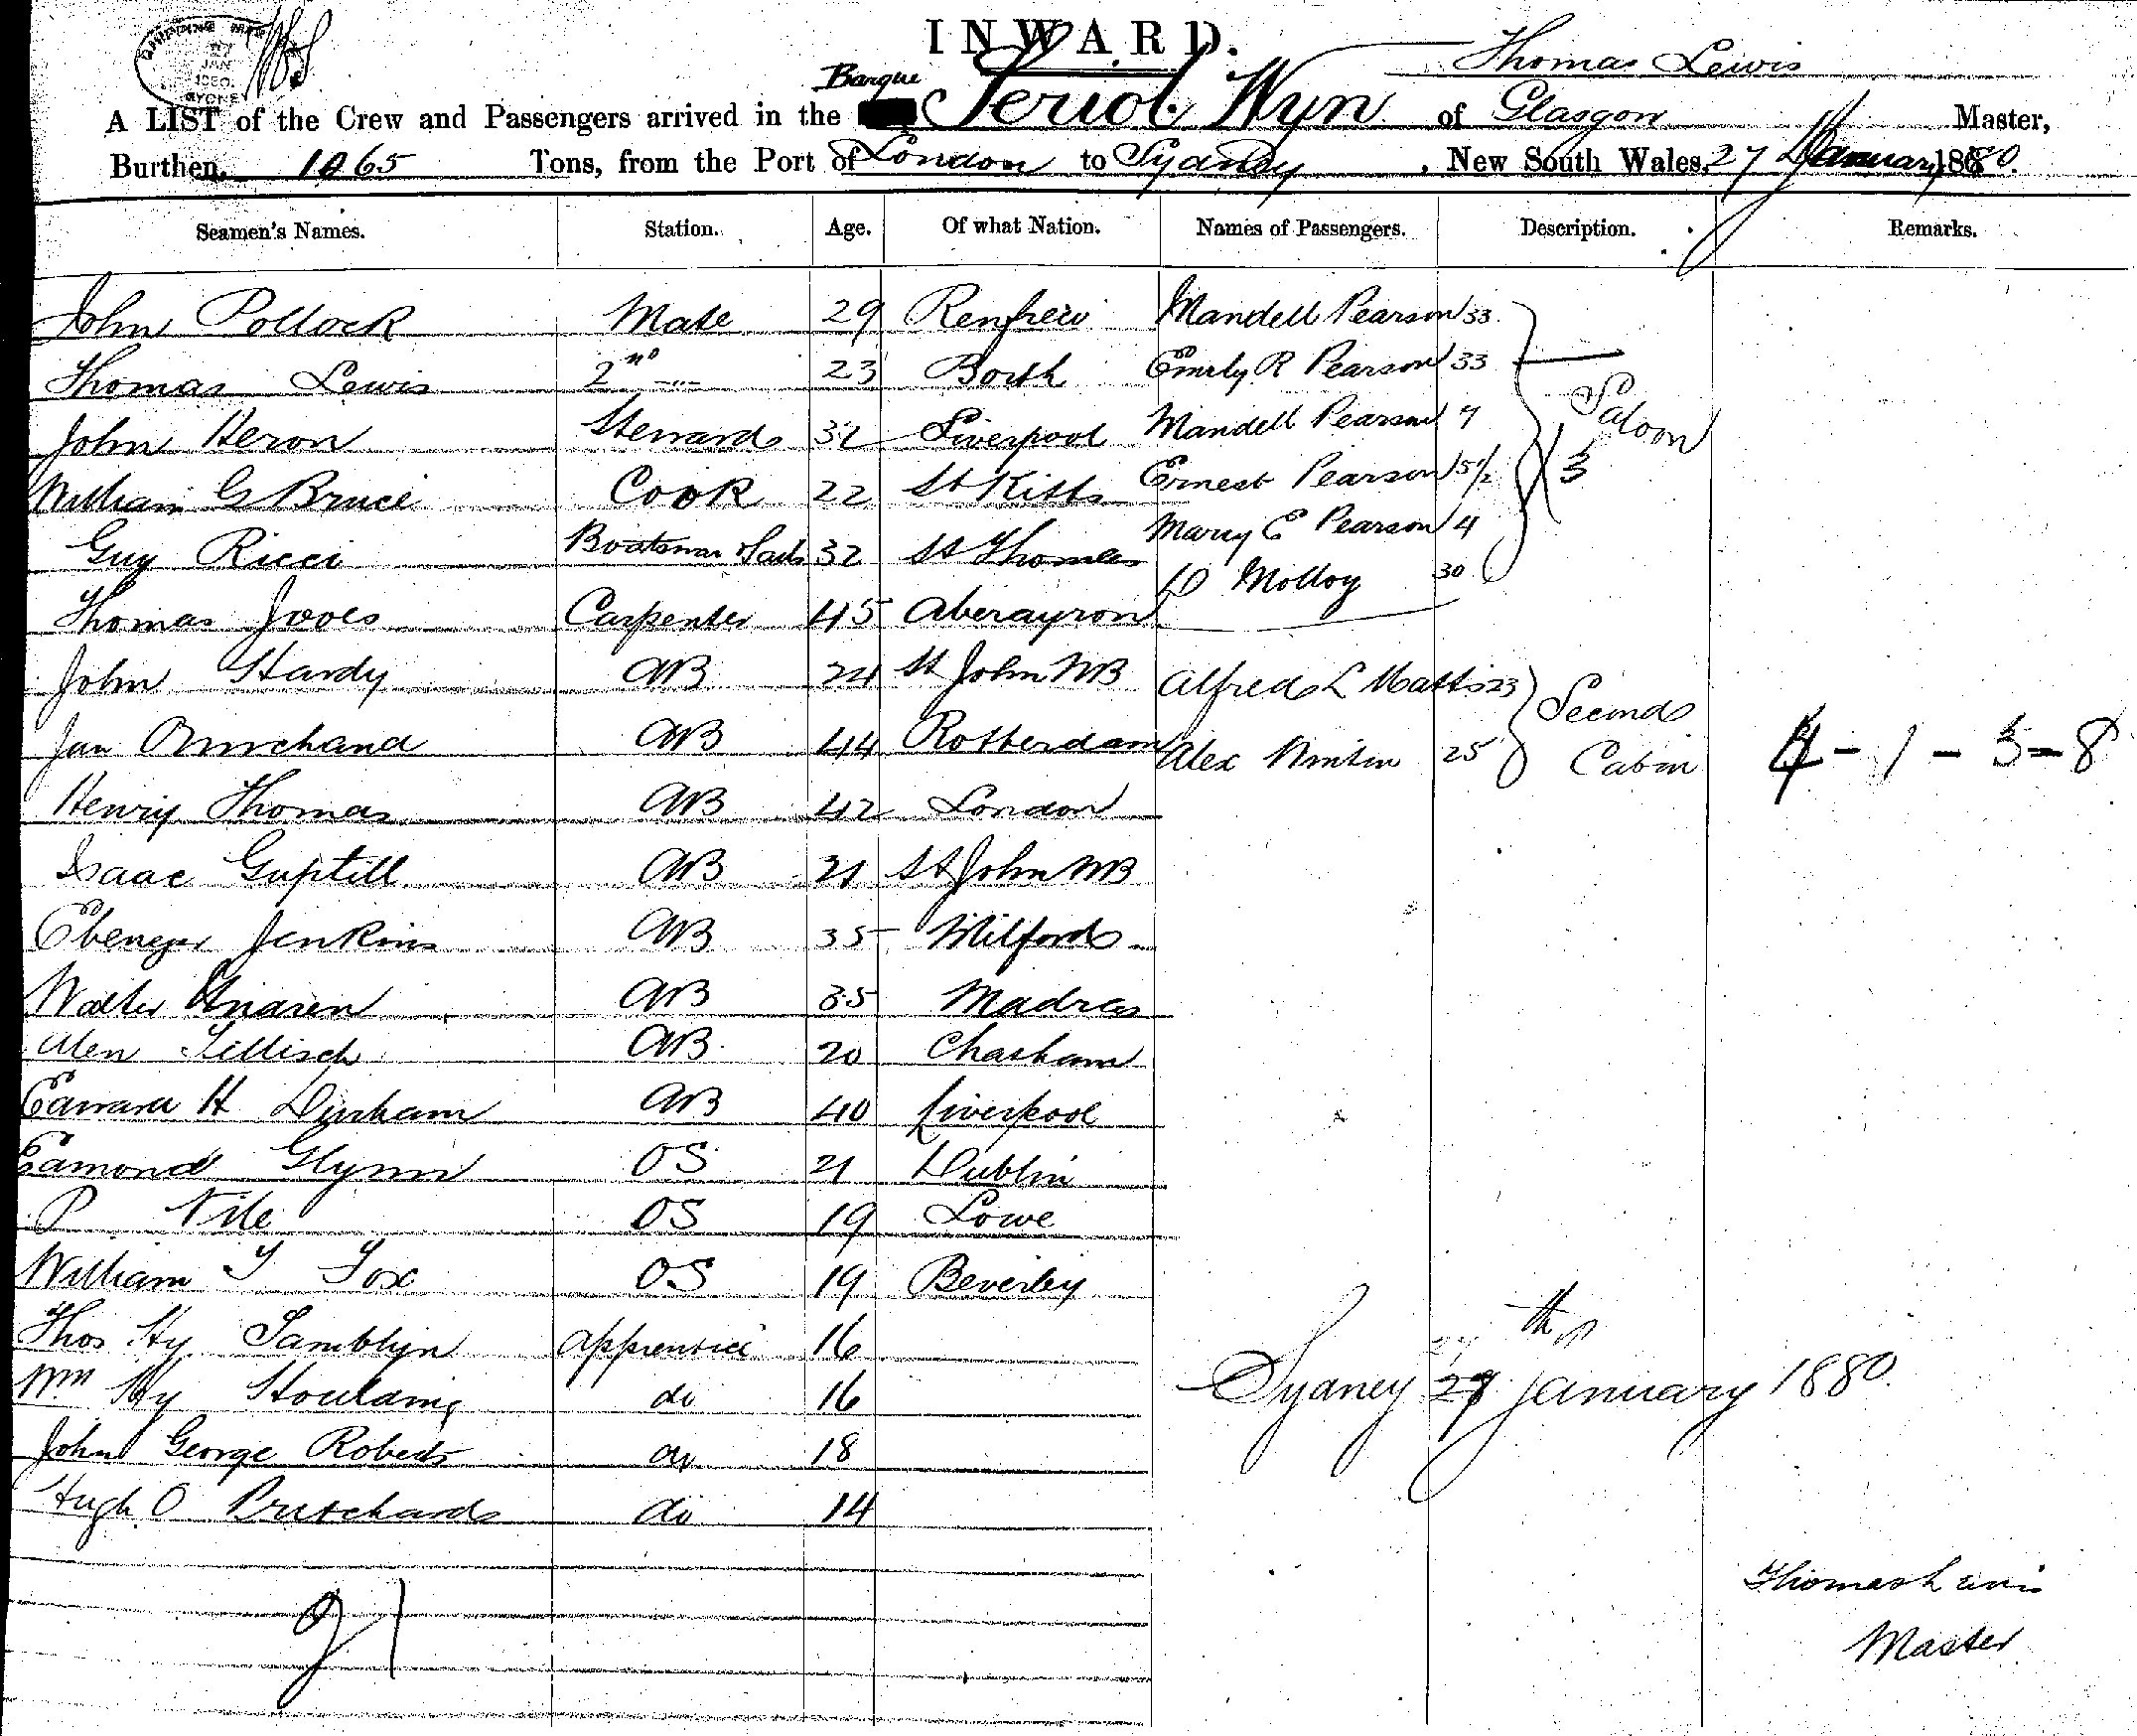 SHIPPING MASTER
27 JAN 1880
SYDNEY
INWARD.
Thomas Lewis
Barque
A LIST of the Crew and Passengers arrived in the Teriot Wyn of Glasgow Master,
Burthen, 1065 Tons, from the Port of London to Sydney, New South Wales, 27 January 1880.
Seamen's Names. Station. Age. Of what Nation. Names of Passengers. Description. Remarks.
John Pollock Mate 29 Renfrew Mandell Pearson 33
Thomas Lewis 2nd -"- 23 Borth Emily R Pearson 33
John Heron Steward 32 Liverpool Mandell Pearson 7 Saloon
William G Bruce Cook 22 St Kitts Ernest Pearson 5 1/2 3
Guy Ricci Boatswain 32 St Thomas Mary E Pearson 4
D Molloy 30
Thomas Jones Carpenter 45 Aberayron
John Hardy AB 24 St John NB Alfred L Matts 23 Second
Jan AB 44 Rotterdam Alex 25 Cabin 4 - 1 - 3 - 8
Henry Thomas AB 42 London
Isaac Guptill AB 21 St John NB
Ebenezer Jenkins AB 35 Milford
Walter AB 35 Madras
Alex AB 20 Chatham
Edward H Durham AB 40 Liverpool
Edmond Glynn OS 21 Dublin
P Nile OS 19 Lowe
William T Fox OS 19 Beverley
Thos Hy Tamblyn apprentice 16
Wm Hy do 16
John George Roberts do 18
Hugh O Pritchard do 14
Sydney 27th January 1880.
21
Thomas Lewis
Master